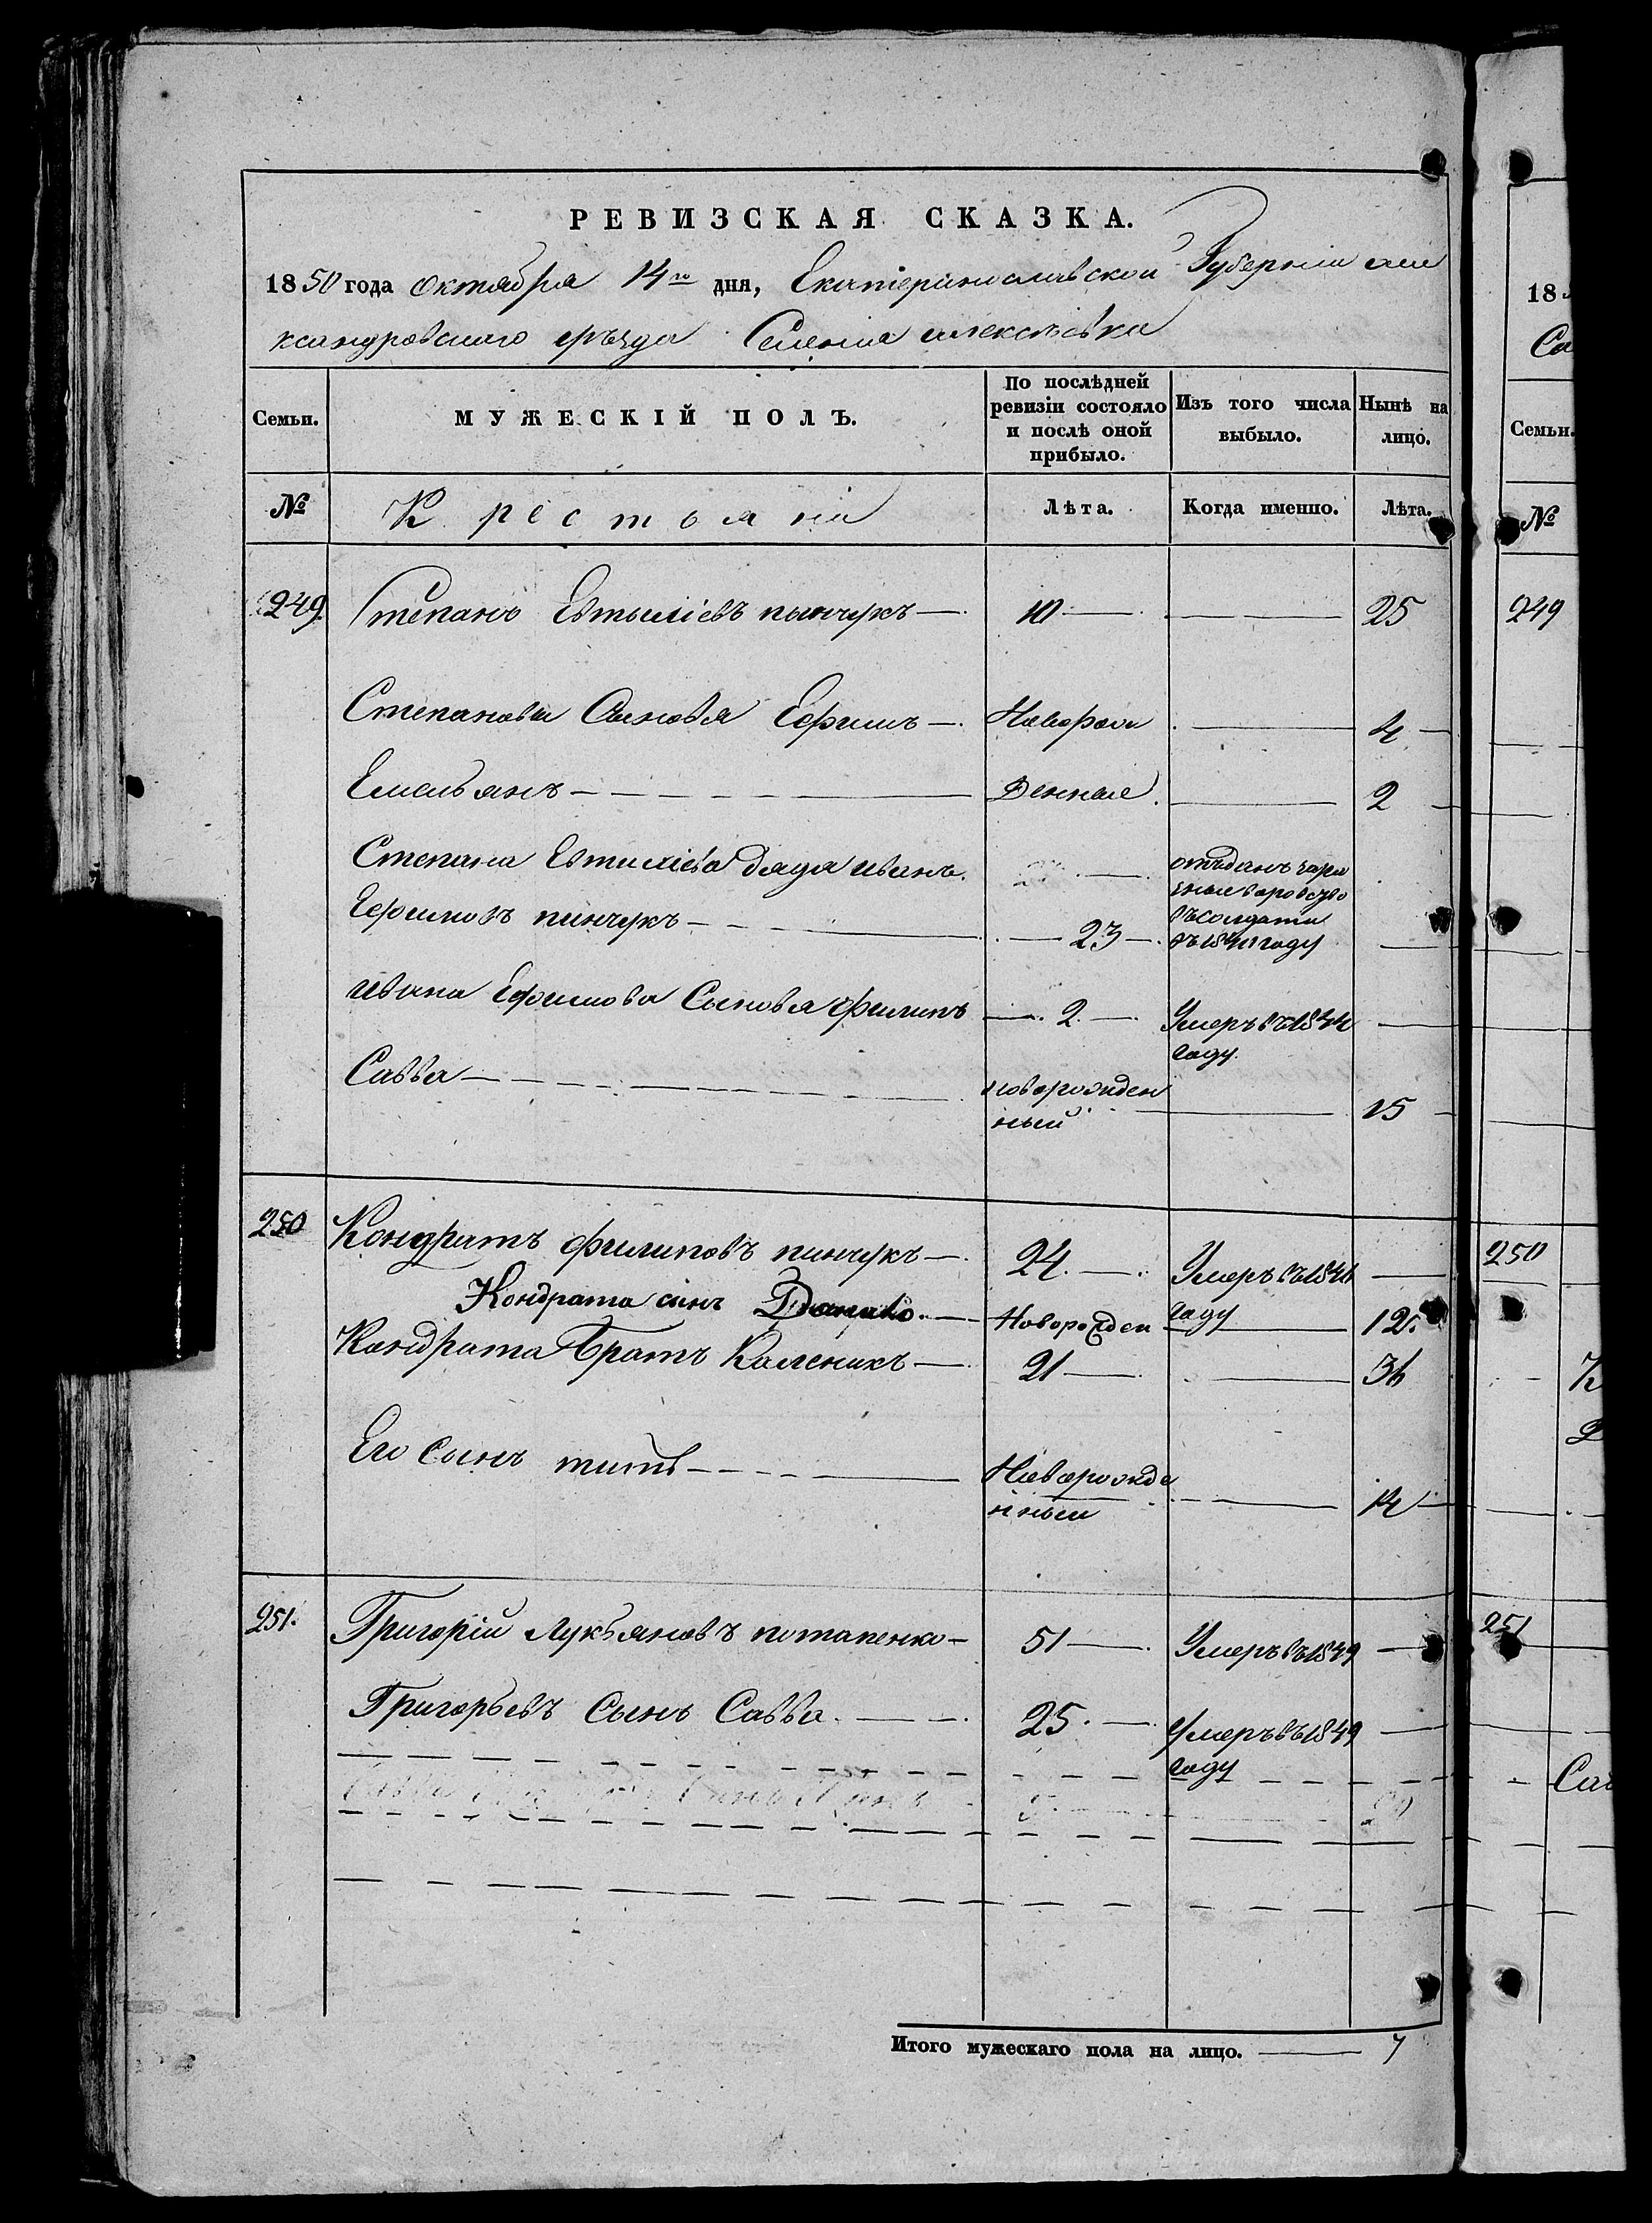 РЕВИЗСКАЯ СКАЗКА.
1850 года октября 14го дня, Екатеринославской Губернии але
ксандровского уѣзда Селения алексѣевка
Семьи. МУЖЕСКІЙ ПОЛЪ. По послѣдней ревизіи состояло и послѣ оной прибыло. Изъ того числа выбыло. Нынѣ на лицо.
№ Крестьяни Лѣта. Когда именно. Лѣта.
249. Степанъ Евтыхіевъ пинчукъ — 10 — 25
Степановы Сыновя Ефимъ — Наворож 4
Емельянъ — денные 2
Степана Евтихіева дядя иванъ отъданъ
Ефимовъ пинчукъ — 23 — въ солдаты
въ 1840 году
ивана Ефимова Сыновя филипъ — 2 — Умеръ въ 1844
году
Савва — новорожден
ный 15
250 Кондратъ филиповъ пинчукъ — 24 — Умеръ въ 1846
году
Кондрата сынъ Данило — Новорожден 12.
Кондрата Братъ Каленикъ — 21 — 36
Его Сынъ титъ — Наворожде
нный 14
251. Григорій Лукьяновъ потапенко — 51 — Умеръ въ 1849
Григорьевъ Сынъ Савва — 25 — Умеръ въ 1849
году
Итого мужескаго пола на лицо. — 7
18
Се
Семьи.
№
249
250
251
Сав